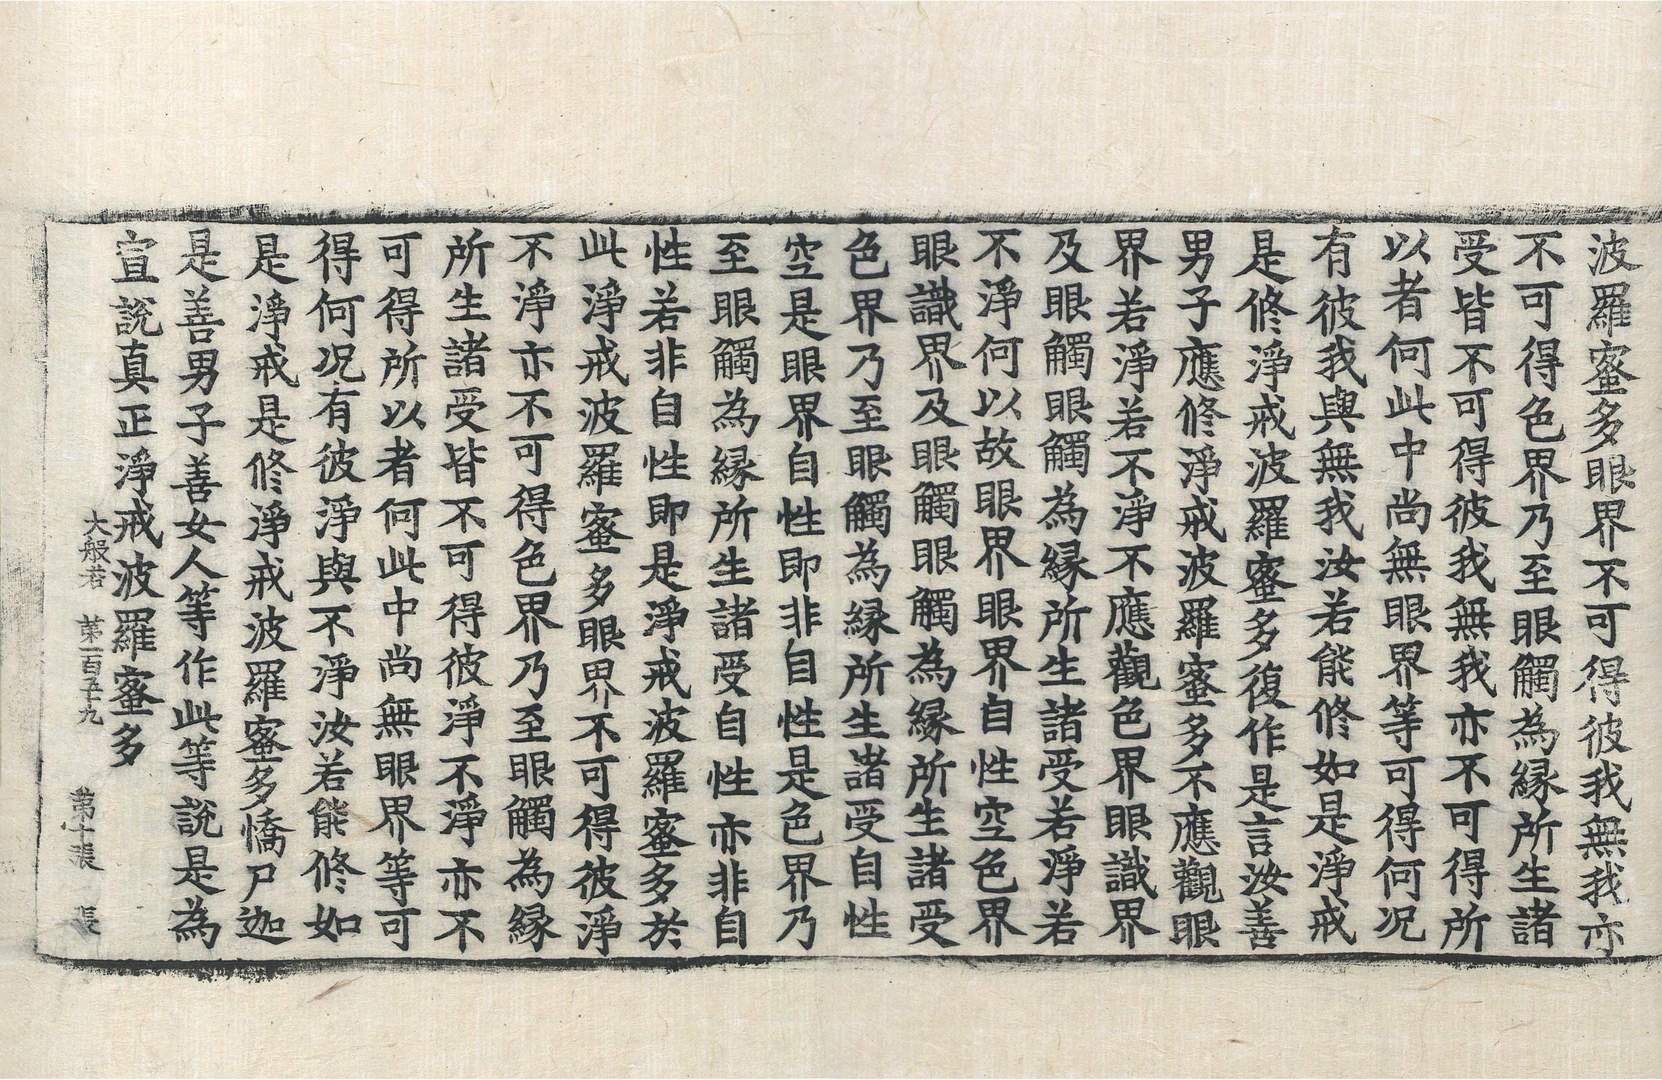 波羅蜜多眼界不可得彼我無我亦
不可得色界乃至眼觸為縁所生諸
受皆不可得彼我無我亦不可得所
以者何此中尚無眼界等可得何况
有彼我與無我汝若能修如是淨戒
是修淨戒波羅蜜多復作是言汝善
男子應修淨戒波羅蜜多不應觀眼
界若淨若不淨不應觀色界眼識界
及眼觸眼觸為縁所生諸受若淨若
不淨何以故眼界眼界自性空色界
眼識界及眼觸眼觸為縁所生諸受
色界乃至眼觸為縁所生諸受自性
空是眼界自性即非自性是色界乃
至眼觸為縁所生諸受自性亦非自
性若非自性即是淨戒波羅蜜多於
此淨戒波羅蜜多眼界不可得彼淨
不淨亦不可得色界乃至眼觸為縁
所生諸受皆不可得彼淨不淨亦不
可得所以者何此中尚無眼界等可
得何况有彼淨與不淨汝若能修如
是淨戒是修淨戒波羅蜜多憍尸迦
是善男子善女人等作此等說是為
宣說真正淨戒波羅蜜多
大般若 第一百五十九 第十張 張